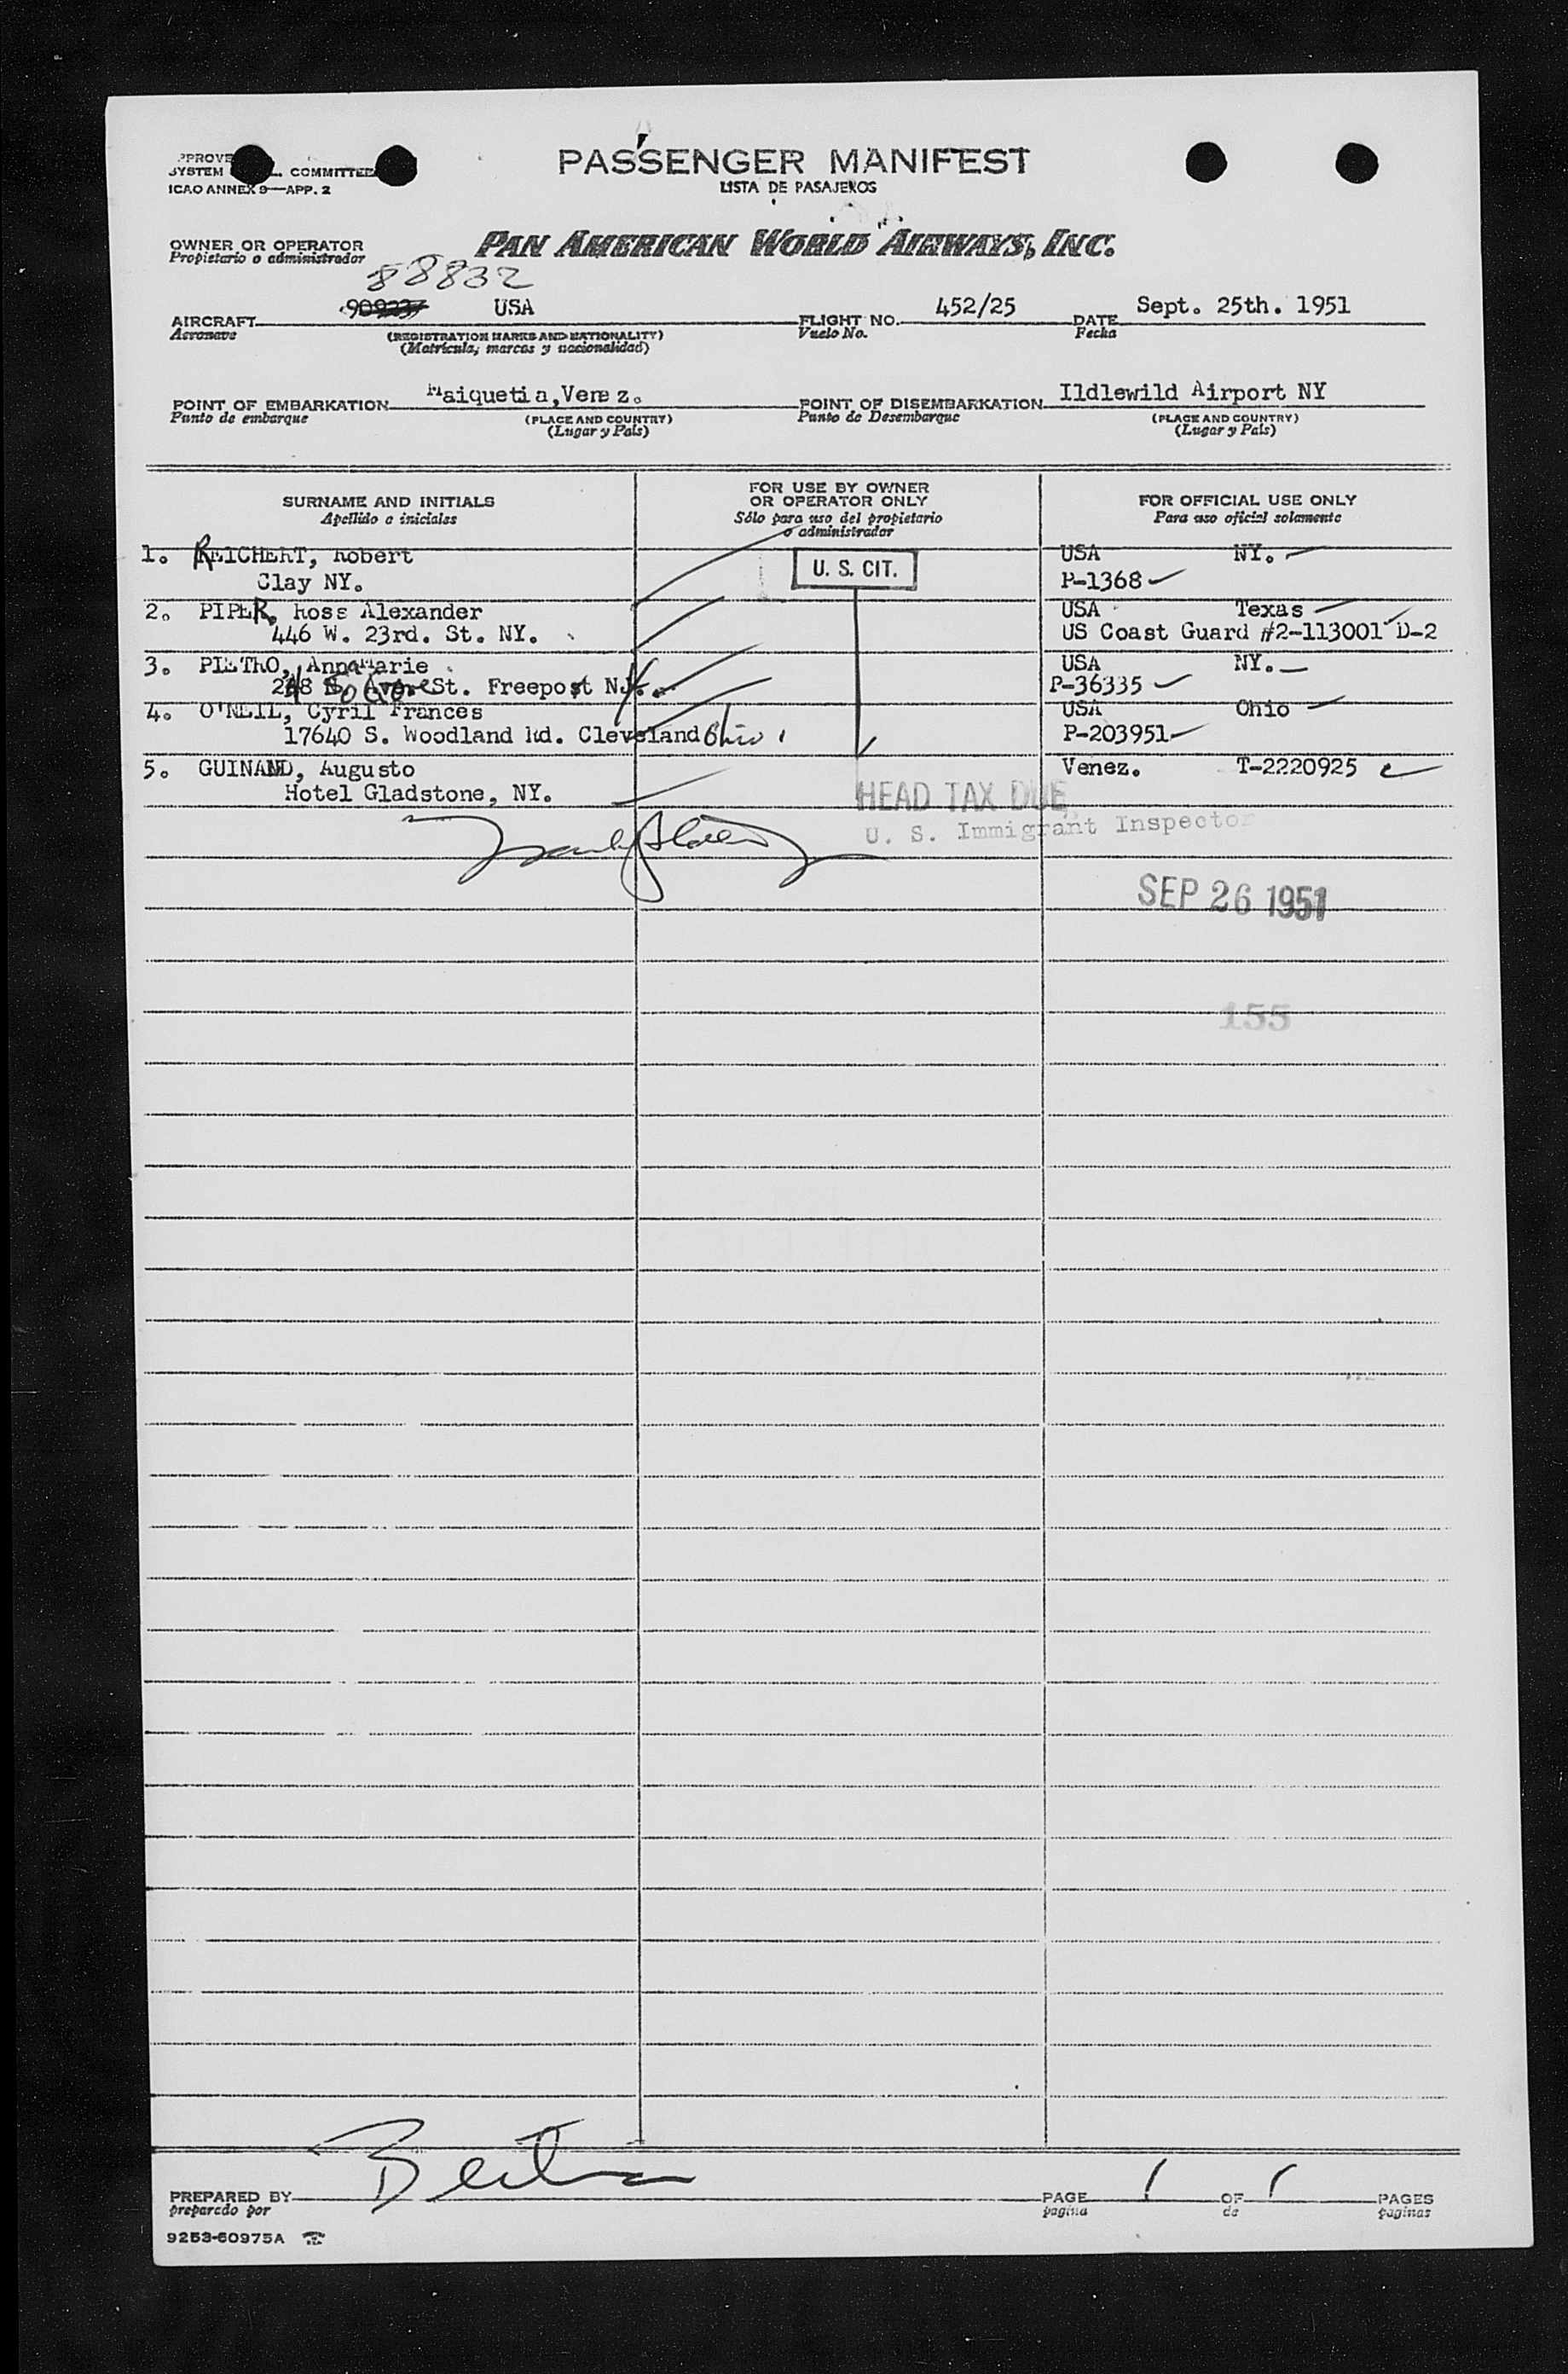 PASSENGER MANIFEST
LISTA DE PASAJEROS
COMMITTEE
ICAO ANNEX 9—APP. 2
OWNER OR OPERATOR
Propietario o administrador
PAN AMERICAN WORLD AIRWAYS, INC.
88832
USA
452/25
Sept. 25th. 1951
AIRCRAFT
Aeronave
(REGISTRATION MARKS AND NATIONALITY)
(Matrícula, marcas y nacionalidad)
FLIGHT NO.
Vuelo No.
DATE
Fecha
Maiquetia, Venez.
Ildlewild Airport NY
POINT OF EMBARKATION
Punto de embarque
(PLACE AND COUNTRY)
(Lugar y País)
POINT OF DISEMBARKATION
Punto de Desembarque
(PLACE AND COUNTRY)
(Lugar y País)
SURNAME AND INITIALS
Apellido e iniciales
FOR USE BY OWNER
OR OPERATOR ONLY
Sólo para uso del propietario
o administrador
FOR OFFICIAL USE ONLY
Para uso oficial solamente
1. REICHERT, Robert USA NY.
Clay NY. P-1368
U. S. CIT.
2. PIPER, Ross Alexander USA Texas
446 W. 23rd. St. NY. US Coast Guard #2-113001 D-2
3. PIETRO, AnnaMarie USA NY.
St. Freepost P-36335
4. O'NEIL, Cyril Frances USA Ohio
17640 S. Woodland Rd. Cleveland Ohio P-203951
5. GUINAND, Augusto Venez. T-2220925
Hotel Gladstone, NY.
HEAD TAX DUE
U. S. Immigrant Inspector
SEP 26 1951
155
PREPARED BY
preparado por
PAGE 1 OF 1 PAGES
pagina de paginas
9253-60975A